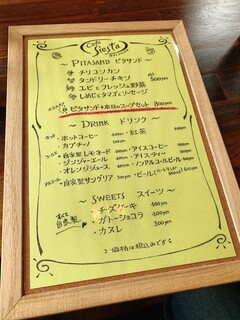 Cafe
Siesta
～ PITASAND ピタサンド ～
チリコンカン
タンドリーチキン
エビとフレッシュ野菜
しめじとタマゴとソーセージ
500yen
ピタサンド+本日のスープセット 800yen
～ DRINK ドリンク ～
・ホットコーヒー
・紅茶
カプチーノ
・自家製レモネード
・アイスコーヒー
・ジンジャーエール
・アイスティー
・オレンジジュース
・ノンアルコールビール
・自家製サングリア
・ビール
～ SWEETS スイーツ ～
すべて
自家製
・チーズケーキ 400yen
・ガトーショコラ 400yen
・カヌレ
価格は税込みです